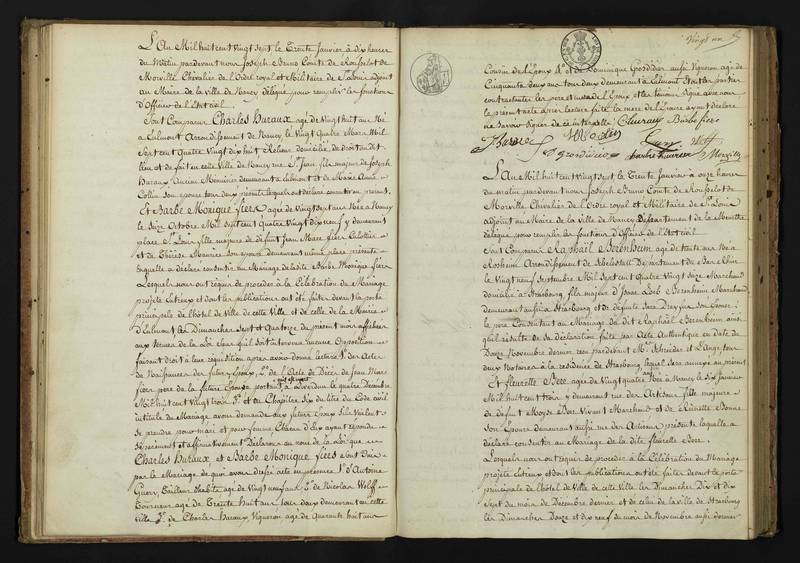 L'An Mil huit cent vingt sept le Trente Janvier à dix heures
du Matin pardevant nous Joseph Bruno Comte de Rousselot de
Morville Chevalier de l'Ordre royal et Militaire de St Louis adjoint
au Maire de la ville de Nancy délégué pour remplir les fonctions
d'Officier de l'Etat civil
Sont Comparus Charles Haraux agé de Vingt huit ans Né
à Eulmont Arrondissement de Nancy le Vingt quatre Mars Mil
Sept cent quatre Vingt dix huit Relieur domicilié de droit au dit
lieu et de fait en cette Ville de Nancy rue St Jean fils majeur de Joseph
Haraux Ancien Menuisier demeurant à Eulmont et de Marie Anne
Collin son épouse tous deux présents lesquels ont déclaré consentir au présent
Et Barbe Monique fiers agée de Vingt sept ans Née à Nancy
le Seize Octobre Mil Sept cent quatre Vingt dix neuf y demeurant
place St Louis fille majeure de defunt Jean Marc fiers
et de Thérèse Maurice son épouse demeurant même place présente
laquelle a déclaré consentir au Mariage de ladite Barbe Monique fiers
Lesquels nous ont requis de procéder à la Célébration du Mariage
projeté Entreux et dont les publications ont été faites devant la porte
principale de l'hôtel de Ville de cette Ville et de celle de la Mairie
d'Eulmont les Dimanches Sept et Quatorze du présent mois affichées
aux termes de la Loi sans qu'il soit intervenu aucune Opposition
faisant droit à leur réquisition après avoir donné lecture 1° des Actes
de Naissances des futurs Epoux, 2° de l'Acte de Décès de Jean Marc
fiers père de la future Epouse portant à Liverdun le quatre Decembre
Mil huit cent Vingt trois 3° et du Chapitre Six du titre du Code civil
intitulé du Mariage avons demandé aux futurs Epoux s'ils Veulent
se prendre pour mari et pour femme Chacun d'Eux ayant répondu
séparément et affirmativement Déclarons au nom de la Loi que
Charles Haraux et Barbe Monique fiers Sont Unis
par le Mariage de quoi avons dressé acte en présence 1° d'Antoine
Guery Tailleur d'habits agé de Vingt neuf ans 2° de Nicolas Wolff
Tourneur agé de Trente huit ans tous deux demeurant en cette
Ville 3° de Charles Haraux Vigneron agé de Quarante huit ans
Vingt un
Cousin de l'Epoux 4° et de Dominique Grosdidier aussi Vigneron agé de
Cinquante deux ans tous deux demeurant à Eulmont Et ont les parties
contractantes les père et mère de l'Epoux et les témoins Signé avec nous
le présent acte après lecture faite la mère de l'Epoux ayant déclaré
ne Savoir Signer de ce interpellée
Barbe fiers
Haraux
N Wolff
Grosdidier
Morville
L'An Mil huit cent Vingt sept le Trente Janvier à onze heures
du matin pardevant nous Joseph Bruno Comte de Rousselot de
Morville Chevalier de l'Ordre royal et Militaire de St Louis
adjoint au Maire de la Ville de Nancy Département de la Meurthe
délégué pour remplir les fonctions d'Officier de l'Etat civil
Sont Comparus Raphaël Berenheim agé de trente ans Né à
Rosheim Arrondissement de Schelestatt Département du Bas Rhin
le Vingt neuf Septembre Mil Sept cent quatre Vingt Seize Marchand
domicilié à Strasbourg fils majeur d'Isaac Loeb Berenheim Marchand
demeurant aussi à Strasbourg et de défunte Sara Dreyfus Son Epouse
le père Consentant au Mariage du dit Raphaël Berenheim ainsi
qu'il résulte de sa déclaration faite par Acte Authentique en date du
Douze Novembre dernier reçu pardevant Me Schreider et L'Ange tous
deux Notaires à la résidence de Strasbourg lequel sera annexé au présent
Et fleurette Beer agée de Vingt quatre ans Née à Nancy le Six Janvier
Mil huit cent trois y demeurant rue des Artisans fille majeure
de defunt Moyse Beer Vivant Marchand et de Reinette Bonne
son Epouse demeurant aussi rue des Artisans présente laquelle a
déclaré consentir au Mariage de la dite fleurette Beer
Lesquels nous ont requis de procéder à la Célébration du Mariage
projeté Entreux et dont les publications ont été faites devant la porte
principale de l'hôtel de Ville de cette Ville les Dimanches Dix et dix
Sept du mois de Decembre dernier et de celui de la ville de Strasbourg
les Dimanches Douze et dix neuf du mois de Novembre aussi dernier